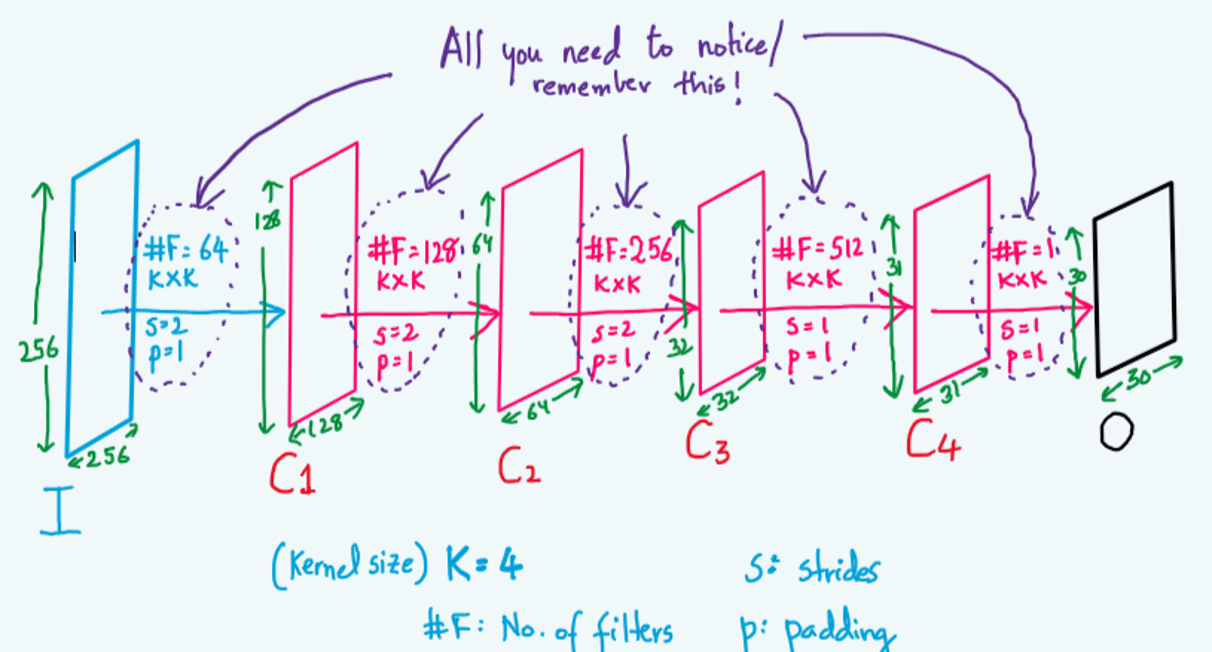 All you need to notice/
remember this!
256
256
I
#F= 64
K×K
S=2
p=1
128
128
C1
#F=128
K×K
S=2
p=1
64
64
C2
#F=256
K×K
S=2
p=1
32
32
C3
#F=512
K×K
S=1
p=1
31
31
C4
#F=1
K×K
S=1
p=1
30
30
O
(Kernel size) K= 4
S: strides
#F: No. of filters
p: padding